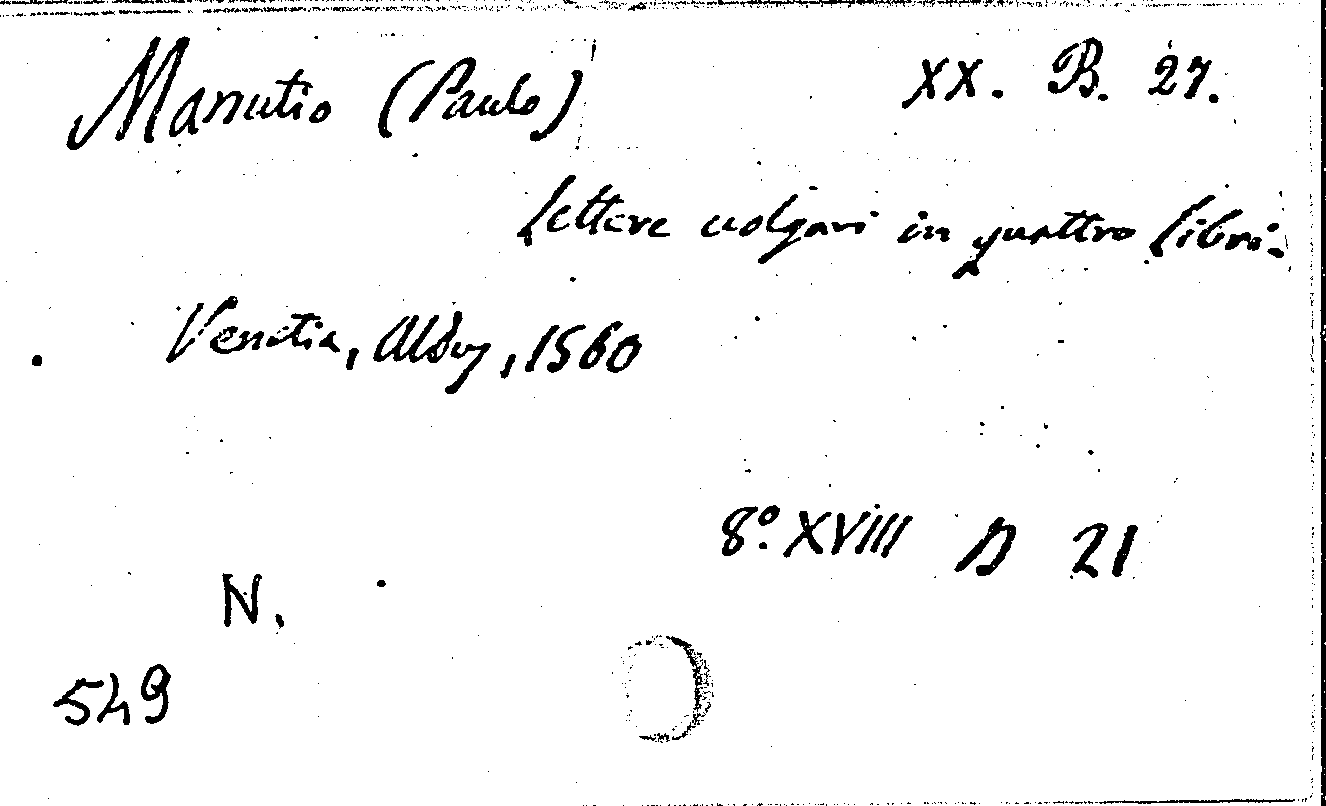 Manutio (Paulo) XX. B. 27.
Lettere volgari in quattro libri.
Venetia, Aldus, 1560
8º. XVIII D 21
N.
549